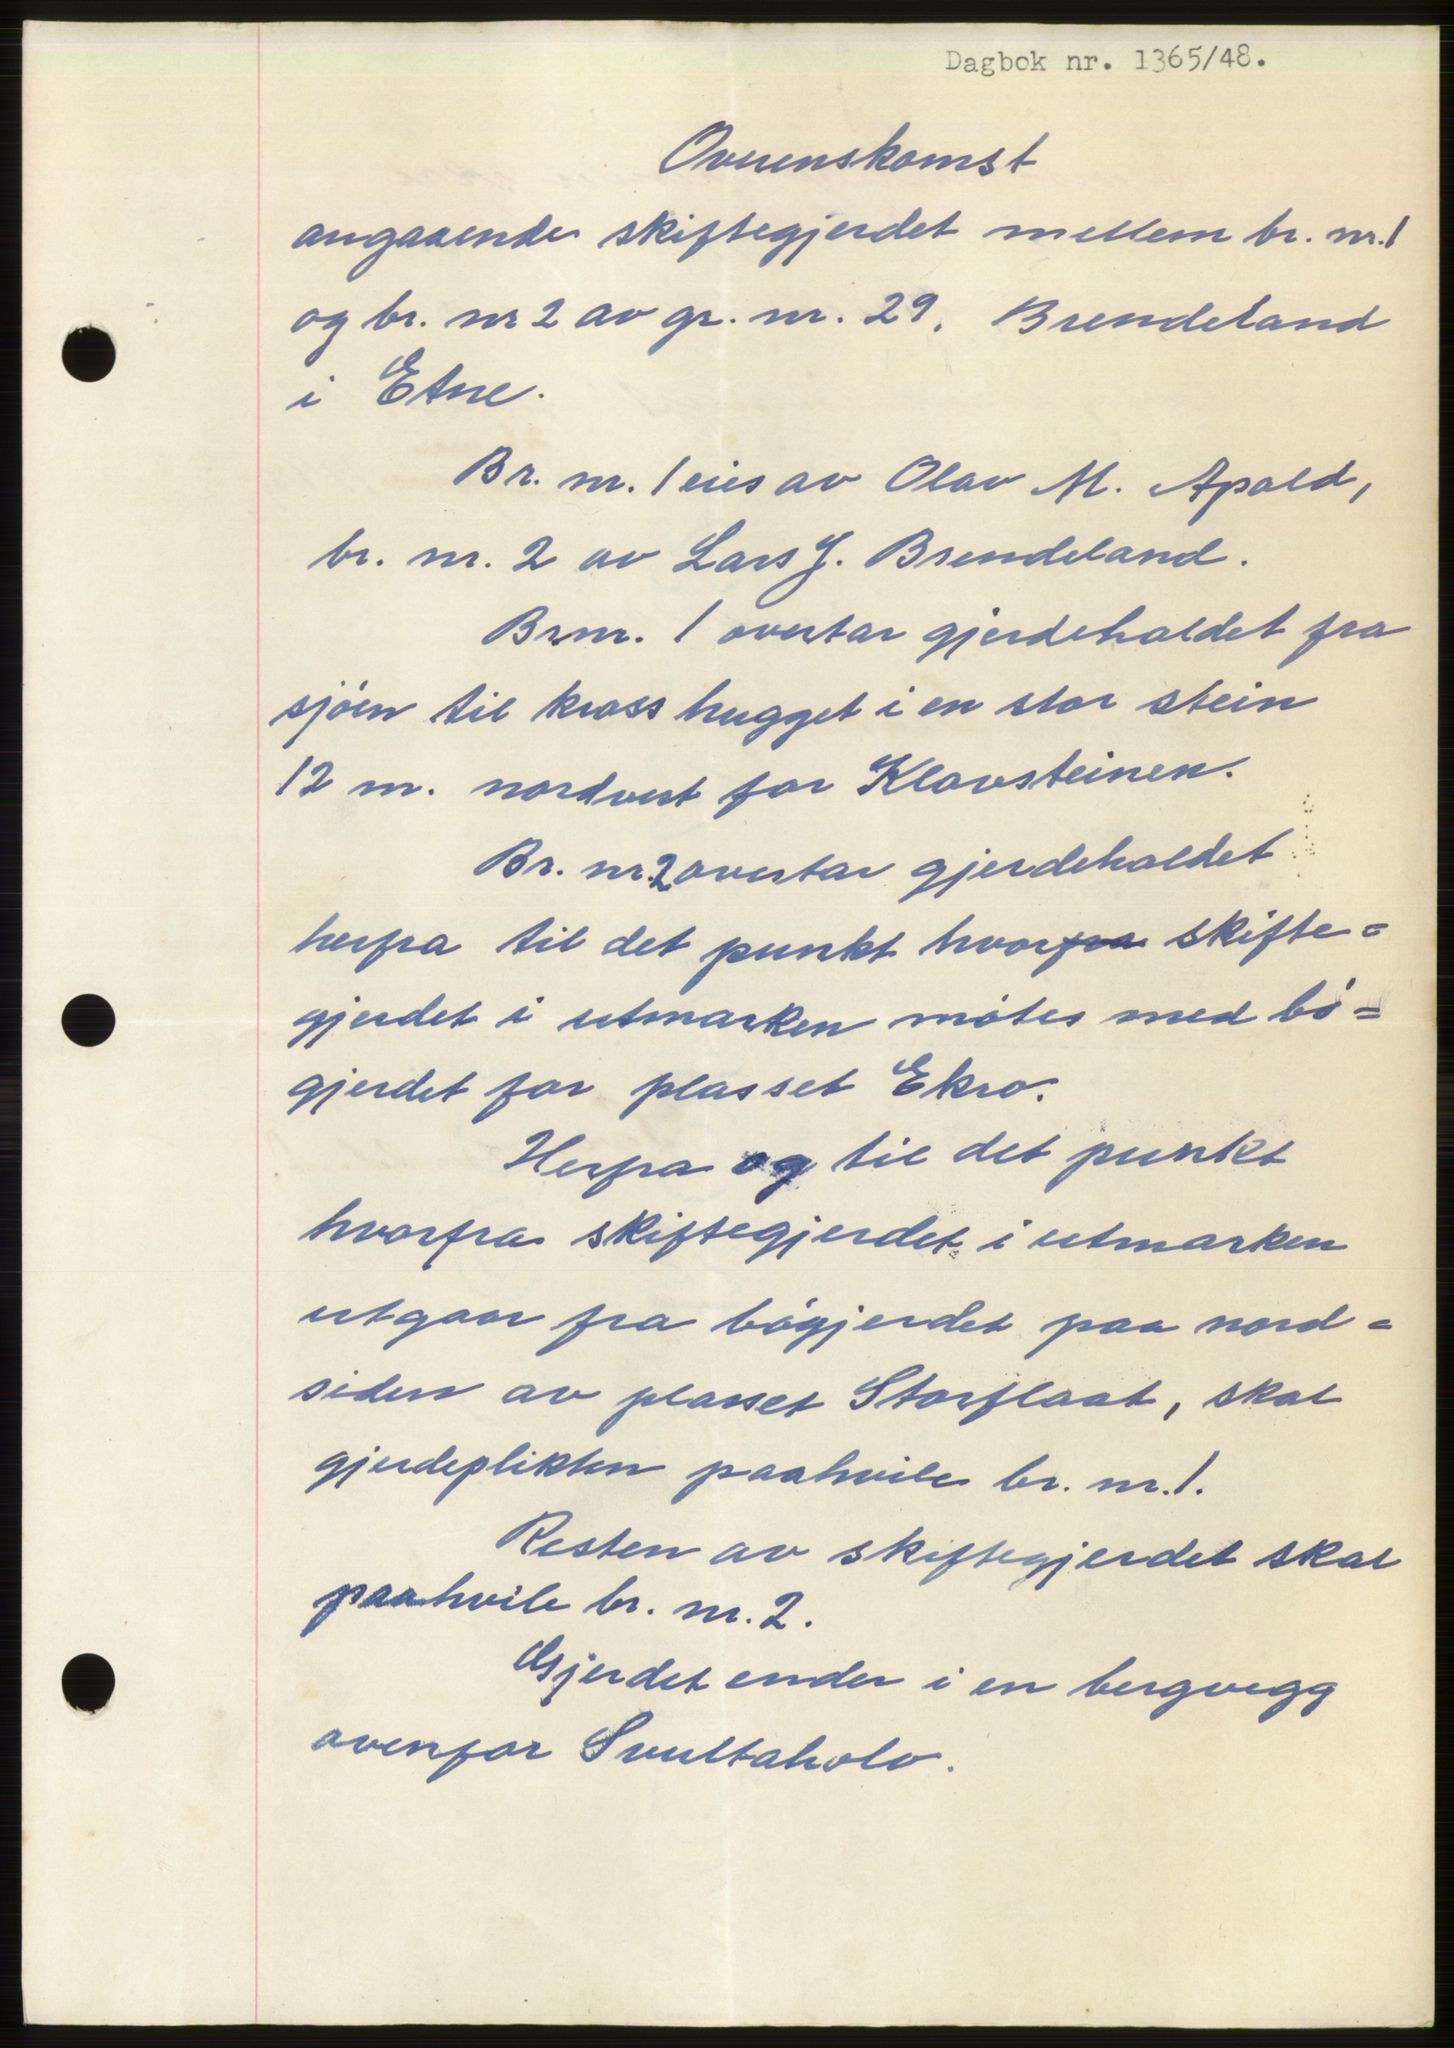 Dagbok nr. 1365/48.
Overenskomst
angaaende skiftegjerdet mellem br. nr. 1
og br. nr 2 av gr. nr. 29. Brendeland
i Etne.
Br. nr. 1 eies av Olav M. Apold,
br. nr. 2 av Lars J. Brendeland.
Br nr. 1 overtar gjerdeholdet fra
sjøen til kross hugget i en stor stein
12 m. nordvest for Klovsteinen.
Br. nr. 2 overtar gjerdeholdet
herfra til det punkt hvorfra skifte=
gjerdet i utmarken møtes med bø=
gjerdet for plasset Ekro.
Herfra og til det punkt
hvorfra skiftegjerdet i utmarken
utgaar fra bøgjerdet paa nord=
siden av plasset Storflaat, skal
gjerdeplikten paahvile br. nr. 1.
Resten av skiftegjerdet skal
paahvile br. nr. 2.
Gjerdet ender i en bergvegg
ovenfor Svultaholo.